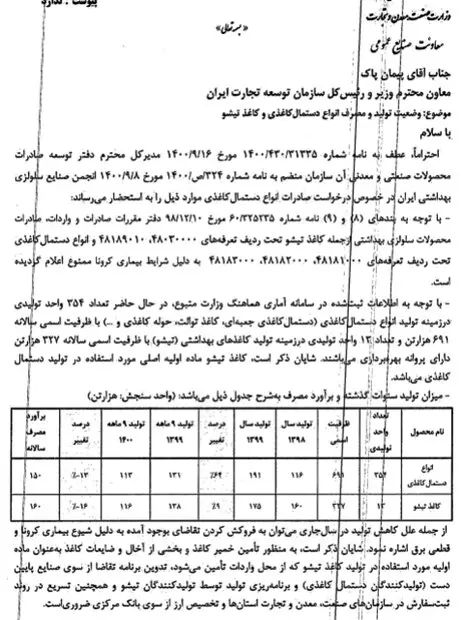 پیوست : ندارد
وزارت صنعت، معدن و تجارت
معاونت صنایع عمومی
«بسمه تعالی»
جناب آقای پیمان پاک
معاون محترم وزیر و رئیس‌کل سازمان توسعه تجارت ایران
موضوع: وضعیت تولید و مصرف انواع دستمال‌کاغذی و کاغذ تیشو
با سلام
احتراماً، عطف به نامه شماره ۱۴۰۰/۴۳۰/۳۱۳۳۵ مورخ ۱۴۰۰/۹/۱۶ مدیرکل محترم دفتر توسعه صادرات
محصولات صنعتی و معدنی آن سازمان منضم به نامه شماره ۳۲۴/ص/۱۴۰۰ مورخ ۱۴۰۰/۹/۸ انجمن صنایع سلولزی
بهداشتی ایران در خصوص درخواست صادرات انواع دستمال‌کاغذی موارد ذیل را به استحضار می‌رساند:
- با توجه به بندهای (۸) و (۹) نامه شماره ۶۰/۳۲۵۲۳۵ مورخ ۹۸/۱۲/۱۰ دفتر مقررات صادرات و واردات، صادرات
محصولات سلولزی بهداشتی ازجمله کاغذ تیشو تحت ردیف تعرفه‌های ۴۸۰۳۰۰۰۰، ۴۸۱۸۹۰۱۰ و انواع دستمال‌کاغذی
تحت ردیف تعرفه‌های ۴۸۱۸۱۰۰۰، ۴۸۱۸۲۰۰۰، ۴۸۱۸۳۰۰۰ به دلیل شرایط بیماری کرونا ممنوع اعلام گردیده
است.
- با توجه به اطلاعات ثبت‌شده در سامانه آماری هماهنگ وزارت متبوع، در حال حاضر تعداد ۳۵۴ واحد تولیدی
درزمینه تولید انواع دستمال کاغذی (دستمال‌کاغذی جعبه‌ای، کاغذ توالت، حوله کاغذی و ...) با ظرفیت اسمی سالانه
۶۹۱ هزارتن و تعداد ۱۳ واحد تولیدی درزمینه تولید کاغذهای بهداشتی (تیشو) با ظرفیت اسمی سالانه ۳۲۷ هزارتن
دارای پروانه بهره‌برداری می‌باشند. شایان ذکر است، کاغذ تیشو ماده اولیه اصلی مورد استفاده در تولید دستمال
کاغذی می‌باشد.
- میزان تولید سنوات گذشته و برآورد مصرف به‌شرح جدول ذیل می‌باشد: (واحد سنجش: هزارتن)
نام محصول تعداد واحد تولیدی ظرفیت اسمی تولید سال ۱۳۹۸ تولید سال ۱۳۹۹ درصد تغییر تولید ۹ ماهه ۱۳۹۹ تولید ۹ ماهه ۱۴۰۰ درصد تغییر برآورد مصرف سالانه
انواع دستمال‌کاغذی ۳۵۴ ۶۹۱ ۱۱۶ ۱۹۱ ٪۶۴ ۱۳۱ ۱۱۳ ٪-۱۳ ۱۵۰
کاغذ تیشو ۱۳ ۳۲۷ ۱۶۰ ۱۷۵ ٪۹ ۱۳۸ ۱۱۶ ٪-۱۶ ۱۶۰
از جمله علل کاهش تولید در سال‌جاری می‌توان به فروکش کردن تقاضای بوجود آمده به دلیل شیوع بیماری کرونا و
قطعی برق اشاره نمود. شایان ذکر است، به منظور تأمین خمیر کاغذ و بخشی از آخال و ضایعات کاغذ به‌عنوان ماده
اولیه مورد استفاده در تولید کاغذ تیشو که از محل واردات تأمین می‌شود، تدوین برنامه تقاضا از سوی صنایع پایین
دست (تولیدکنندگان دستمال کاغذی) و برنامه‌ریزی تولید توسط تولیدکنندگان تیشو و همچنین تسریع در روند
ثبت‌سفارش در سازمان‌های صنعت، معدن و تجارت استان‌ها و تخصیص ارز از سوی بانک مرکزی ضروری‌است.